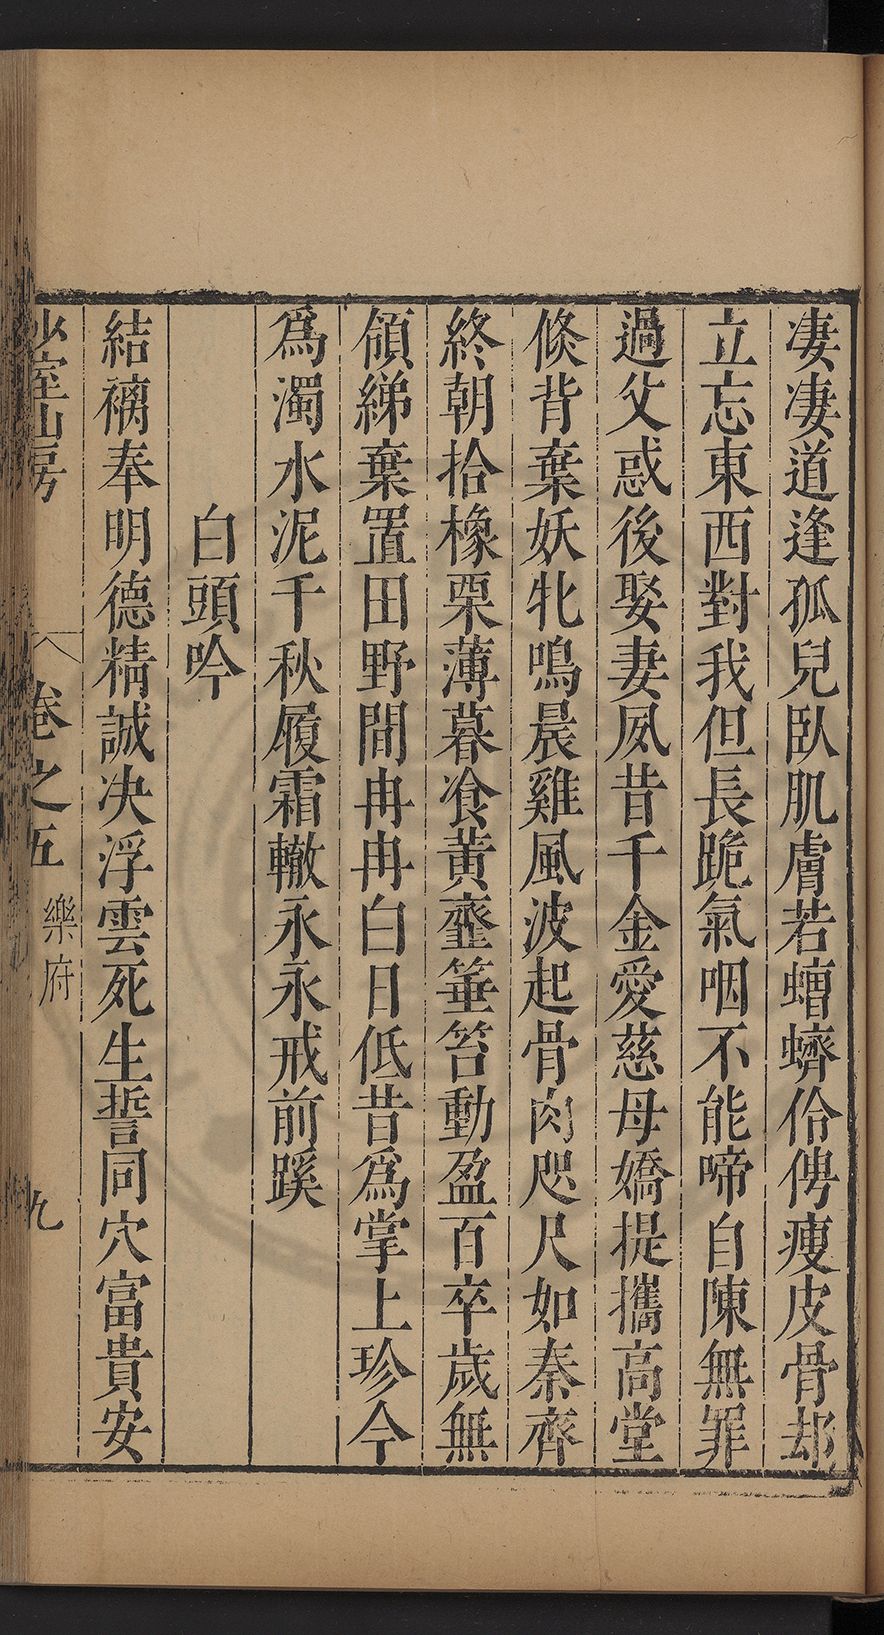 凄凄道逢孤兒臥肌膚若蠐螬伶俜瘦皮骨却
立忘東西對我但長跪氣咽不能啼自陳無罪
過父惑後娶妻夙昔千金愛慈母嬌提攜高堂
倐背棄妖牝鳴晨雞風波起骨肉咫尺如秦齊
終朝拾橡栗薄暮飡黄虀箠笞動盈百卒歲無
領綈棄置田野間冉冉白日低昔爲掌上珍今
爲濁水泥千秋履霜轍永永戒前蹊
白頭吟
結褵奉明德精誠决浮雲死生誓同穴富貴安
少室山房
卷之五 樂府 九